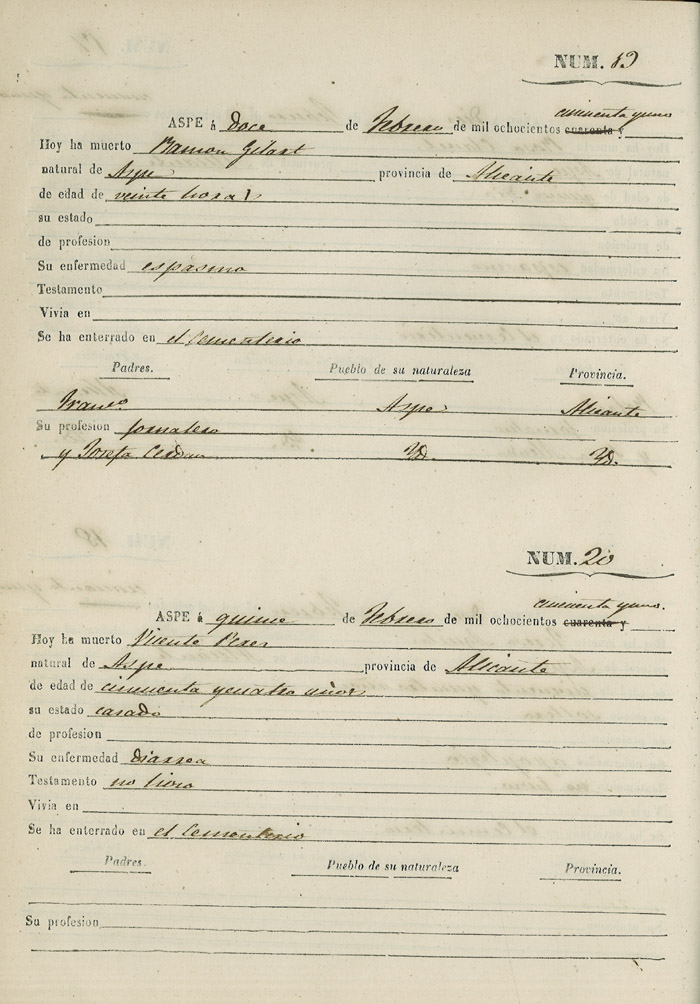 NUM. 19
cincuenta y uno
ASPE á doce de Febrero de mil ochocientos cuarenta y
Hoy ha muerto Ramon Gilart
natural de Aspe provincia de Alicante
de edad de veinte horas
su estado
de profesion
Su enfermedad espasmo
Testamento
Vivia en
Se ha enterrado en el Cementerio
Padres. Pueblo de su naturaleza Provincia.
Franco. Aspe Alicante
Su profesion jornalero
y Josefa Cerdan Yd. Yd.
NUM. 20
cincuenta y uno.
ASPE á quince de Febrero de mil ochocientos cuarenta y
Hoy ha muerto Vicente Perez
natural de Aspe provincia de Alicante
de edad de cincuenta y cuatro años
su estado casado
de profesion
Su enfermedad diarrea
Testamento no hizo
Vivia en
Se ha enterrado en el Cementerio
Padres. Pueblo de su naturaleza Provincia.
Su profesion